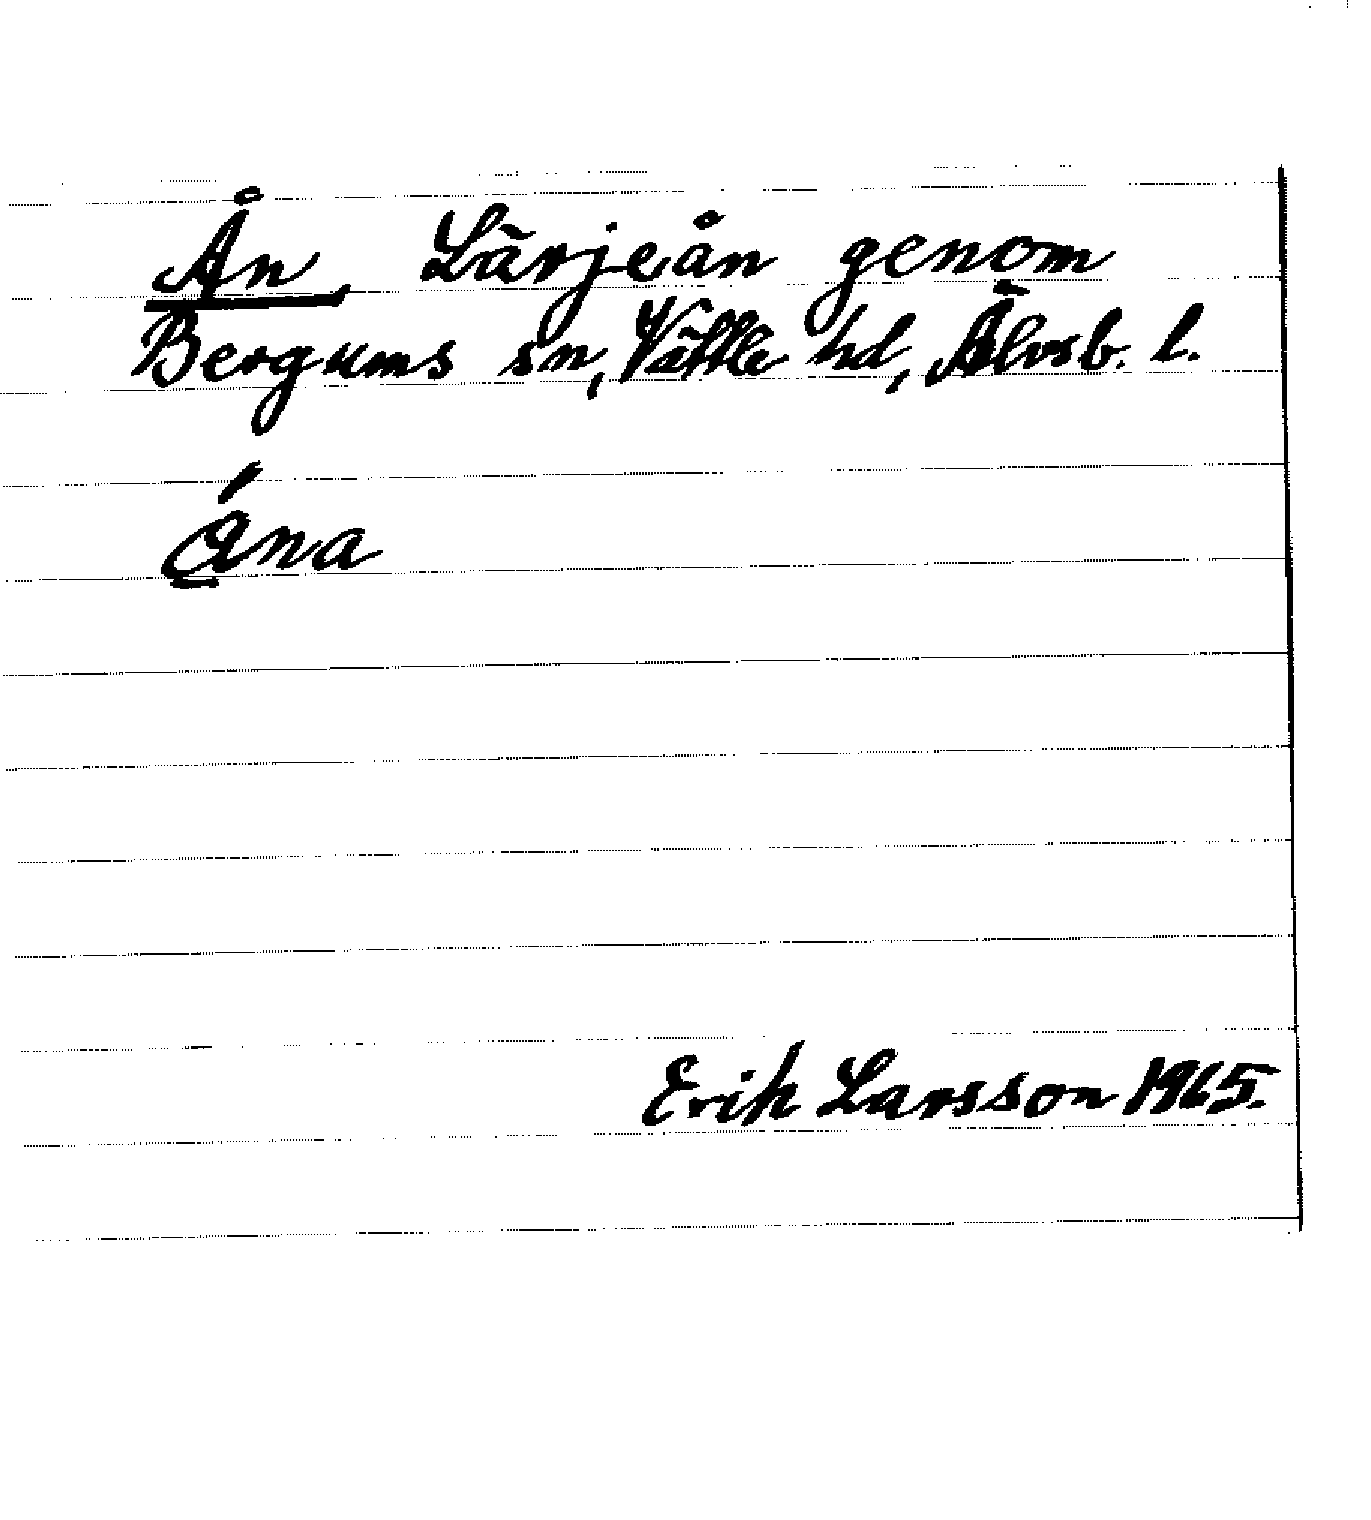 Ån, Lärjeån genom
Bergums sn, Vättle hd, Älvsb. l.
Ána
Erik Larsson 1965.